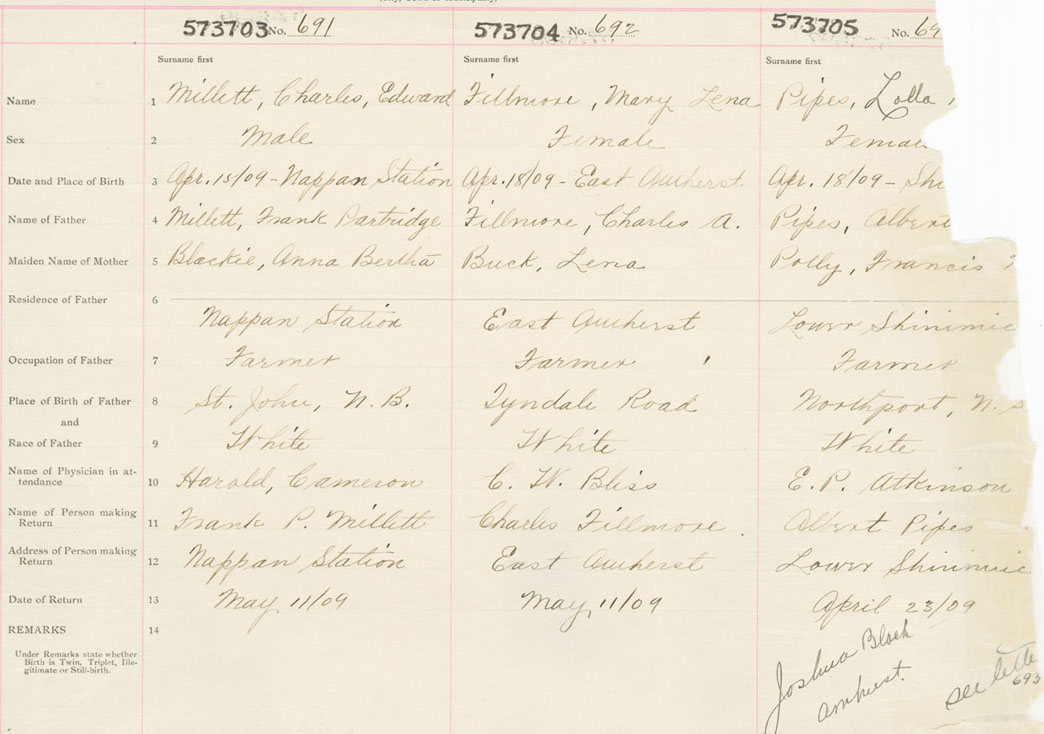 573703 No. 691 573704 No. 692 573705 No. 69
Surname first Surname first Surname first
Name 1 Millett, Charles, Edward Fillmore, Mary Lena Pipes, Lolla
Sex 2 Male Female Female
Date and Place of Birth 3 Apr. 15/09 - Nappan Station Apr. 18/09 - East Amherst Apr. 18/09 - Shi
Name of Father 4 Millett, Frank Partridge Fillmore, Charles A. Pipes, Albert
Maiden Name of Mother 5 Blackie, Anna Bertha Buck, Lena Polly, Francis
Residence of Father 6
Nappan Station East Amherst Lower Shinimic
Occupation of Father 7 Farmer Farmer Farmer
Place of Birth of Father 8 St. John, N.B. Tyndale Road Northport, N.S
and
Race of Father 9 White White White
Name of Physician in at-
tendance 10 Harold, Cameron C. W. Bliss E. P. Atkinson
Name of Person making
Return 11 Frank P. Millett Charles Fillmore. Albert Pipes
Address of Person making
Return 12 Nappan Station East Amherst Lower Shinimic
Date of Return 13 May 11/09 May 11/09 April 23/09
REMARKS 14
Under Remarks state whether
Birth is Twin, Triplet, Ille-
gitimate or Still-birth.
Joshua Black
Amherst.
see lette
693